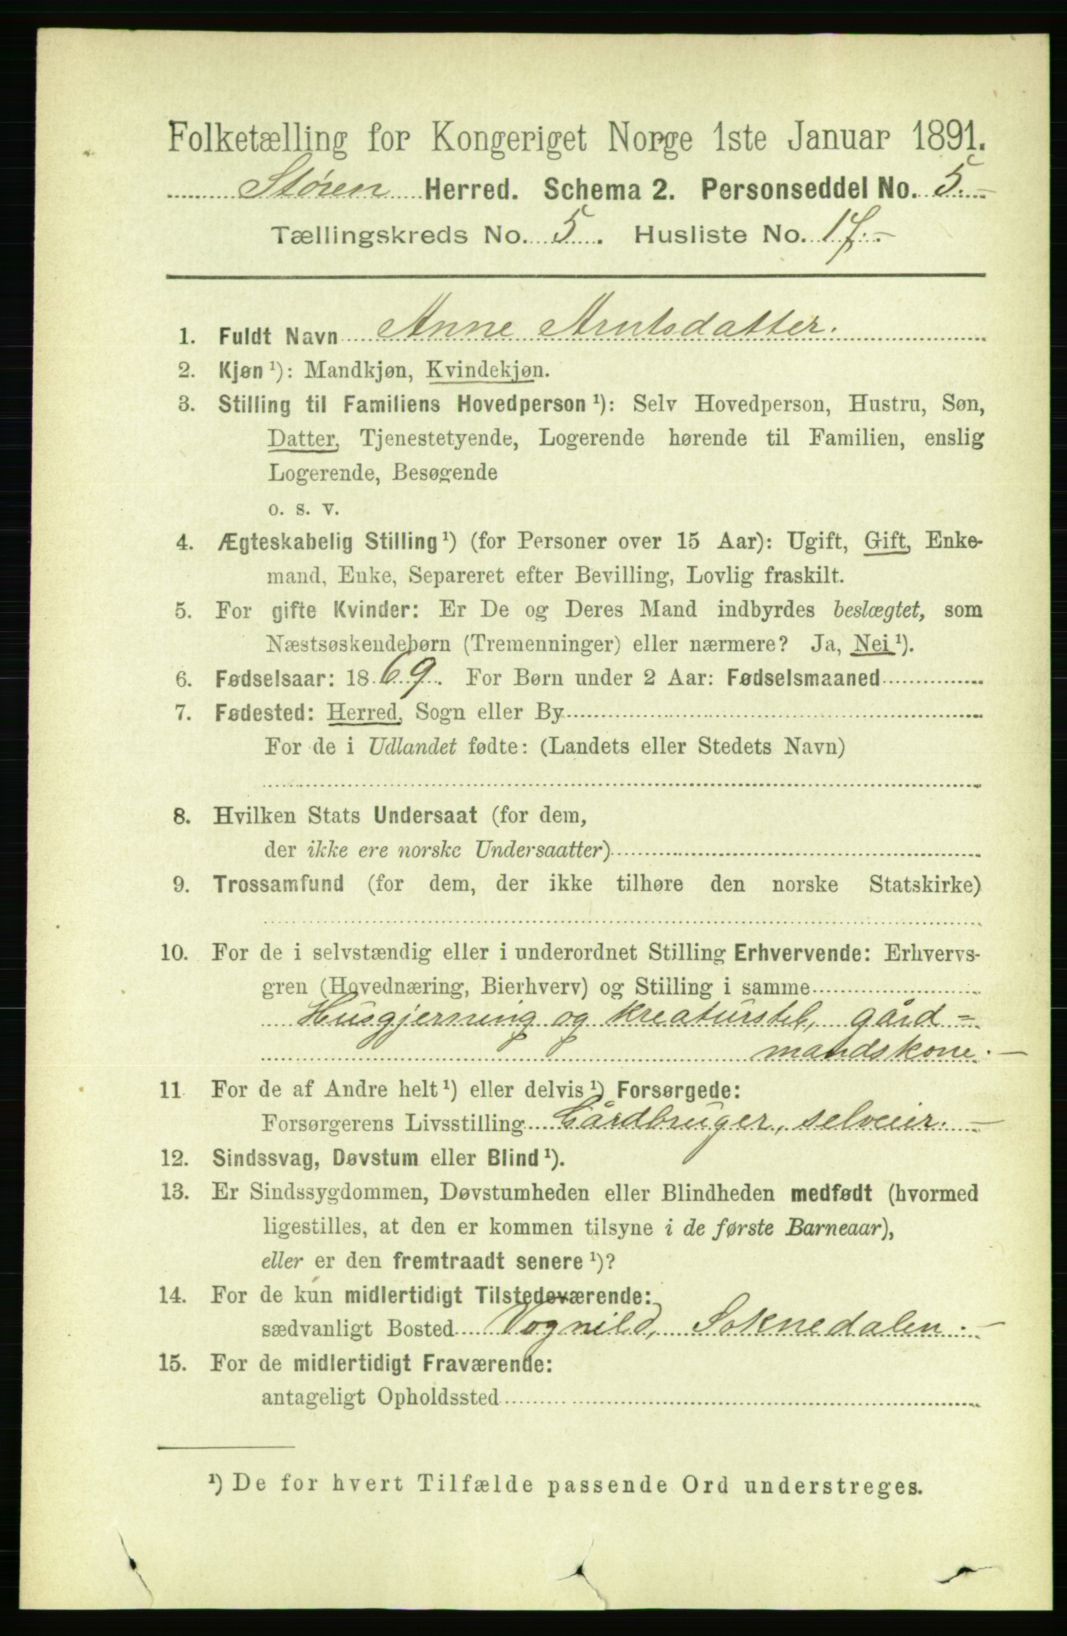 Folketælling for Kongeriget Norge 1ste Januar 1891.
Støren Herred. Schema 2. Personseddel No. 5.-
Tællingskreds No. 5. Husliste No. 17.-
1. Fuldt Navn Anne Arntsdatter.
2. Kjøn ¹): Mandkjøn, Kvindekjøn.
3. Stilling til Familiens Hovedperson ¹): Selv Hovedperson, Hustru, Søn,
Datter, Tjenestetyende, Logerende hørende til Familien, enslig
Logerende, Besøgende
o. s. v.
4. Ægteskabelig Stilling ¹) (for Personer over 15 Aar): Ugift, Gift, Enke-
mand, Enke, Separeret efter Bevilling, Lovlig fraskilt.
5. For gifte Kvinder: Er De og Deres Mand indbyrdes beslægtet, som
Næstsøskendebørn (Tremenninger) eller nærmere? Ja, Nei ¹).
6. Fødselsaar: 1869. For Børn under 2 Aar: Fødselsmaaned
7. Fødested: Herred, Sogn eller By
For de i Udlandet fødte: (Landets eller Stedets Navn)
8. Hvilken Stats Undersaat (for dem,
der ikke ere norske Undersaatter)
9. Trossamfund (for dem, der ikke tilhøre den norske Statskirke)
10. For de i selvstændig eller i underordnet Stilling Erhvervende: Erhvervs-
gren (Hovednæring, Bierhverv) og Stilling i samme
Husgjerning og kreaturstel, gård=
mandskone.-
11 For de af Andre helt ¹) eller delvis ¹) Forsørgede:
Forsørgerens Livsstilling Gårdbruger, selveier.-
12. Sindssvag, Døvstum eller Blind ¹).
13. Er Sindssygdommen, Døvstumheden eller Blindheden medfødt (hvormed
ligestilles, at den er kommen tilsyne i de første Barneaar),
eller er den fremtraadt senere ¹)?
14. For de kun midlertidigt Tilstedeværende:
sædvanligt Bosted Vognild, Soknedalen.-
15. For de midlertidigt Fraværende:
antageligt Opholdssted
¹) De for hvert Tilfælde passende Ord understreges.